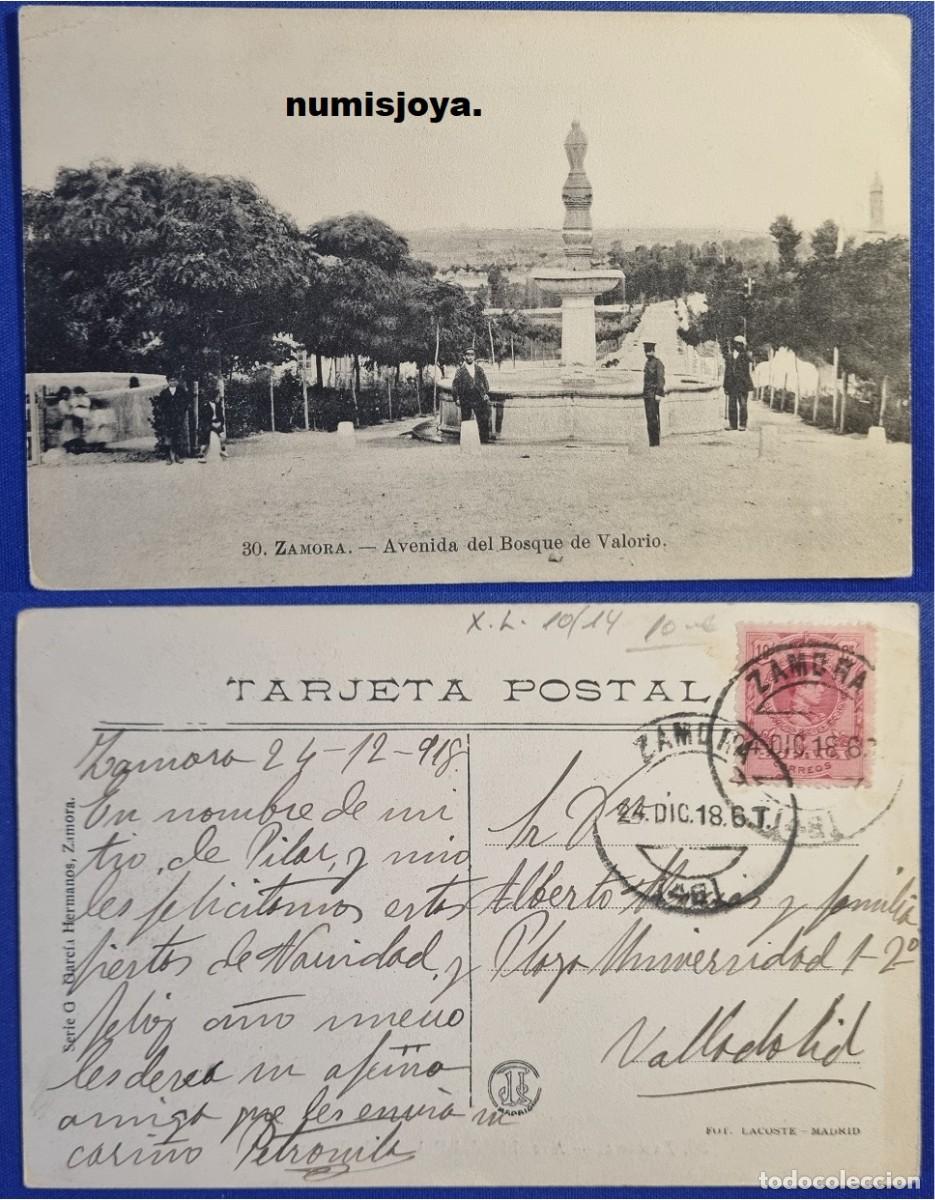 numisjoya.
30. ZAMORA. — Avenida del Bosque de Valorio.
X. L. 10/14
TARJETA POSTAL
ZAMORA
DIC. 18. 6
CORREOS
ZAMORA
24. DIC. 18. 6. T.
Zamora 24-12-918
En nombre de mi
tio, de Pilar, y mio
les felicitamos estas
fiestas de Navidad, y
feliz año nuevo
les desea su
amiga que les envia su
cariño Petronila
Sr Dn
Alberto y familia
Plaza Universidad 1-2º
Valladolid
Serie G - García Hermanos, Zamora.
MADRID
FOT. LACOSTE - MADRID
todocoleccion